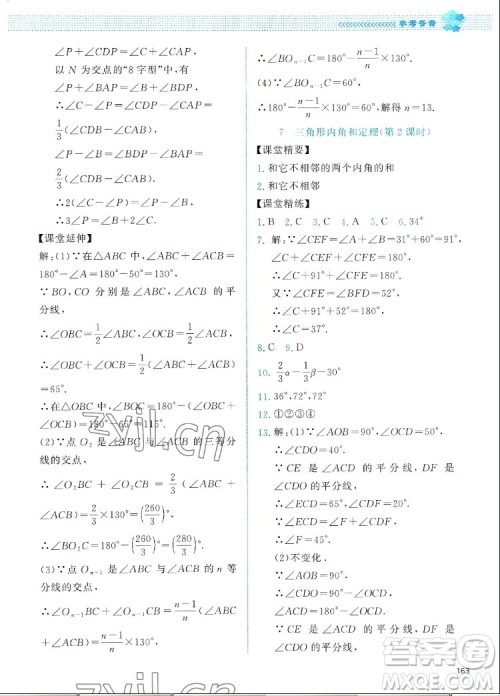 参考答案
∠P+∠CDP=∠C+∠CAP,
∴∠P+∠CDB=∠C+∠CAP.
以 N 为交点的“8字型”中,有
∠P+∠BAP=∠B+∠BDP,
∴∠P+∠BAP=∠B+∠CDB.
∴∠C-∠P=∠CDP-∠CAP=
1/3(∠CDB-∠CAB),
∠P-∠B=∠CDB-∠BAP=
2/3(∠CDB-∠CAB).
∴2(∠C-∠P)=∠P-∠B.
∴3∠P=∠B+2∠C.
【课堂延伸】
解:(1)∵在△ABC中,∠ABC+∠ACB=
180°-∠A=180°-50°=130°,
∵BO,CO 分别是∠ABC与∠ACB的平
分线,
∴∠OBC=1/2∠ABC,∠OCB=1/2∠ACB,
∴∠OBC+∠OCB=1/2(∠ABC+∠ACB)
=65°.
∴在△OBC中,∠BOC=180°-(∠OBC+
∠OCB)=180°-65°=115°.
(2)∵点 O₂ 是∠ABC与∠ACB的三等分
线的交点,
∴∠O₂BC+∠O₂CB=2/3(∠ABC+
∠ACB)=2/3×130°=(260/3)°.
∴∠BO₂C=180°-(260/3)°=(280/3)°.
(3)∵点 Oₙ₋₁ 是∠ABC与∠ACB的 n 等
分线的交点,
∴∠Oₙ₋₁BC+∠Oₙ₋₁CB=(n-1)/n(∠ABC+
∠ACB)=(n-1)/n×130°,
∴∠BOₙ₋₁C=180°-(n-1)/n×130°.
(4)∵∠BOₙ₋₁C=60°,
∴180°-(n-1)/n×130°=60°,解得 n=13.
7 三角形内角和定理(第2课时)
【课堂精要】
1. 和它不相邻的两个内角的和
2. 和它不相邻
【课堂精练】
1. B 2. C 3. C 4. A 5. C 6. 34°
7. 解:∵∠CEF=∠A+∠B=31°+60°=91°,
∠C+∠CEF+∠CFE=180°,
∴∠C+91°+∠CFE=180°.
又∵∠CFE=∠BFD=52°,
∴∠C+91°+52°=180°.
∴∠C=37°.
8. C 9. D
10. 2/3α-1/3β-30°
11. 36°,72°,72°
12. ①②③④
13. 解:(1)∵∠AOB=90°,∠OCD=50°,
∴∠CDO=40°.
∵CE 是∠ACD 的平分线,DF 是
∠CDO的平分线,
∴∠ECD=65°,∠CDF=20°.
∵∠ECD=∠F+∠CDF,
∴∠F=45°.
(2)不变化.
∵∠AOB=90°,
∴∠CDO=90°-∠OCD,
∠ACD=180°-∠OCD.
∵CE 是∠ACD 的平分线,DF 是
163
zyjl.cn
zyjl.cn
答案圈
MXQE.COM